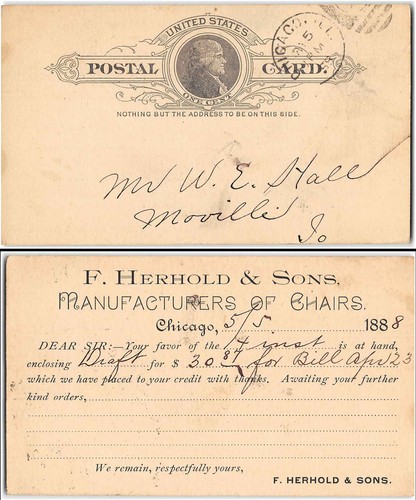 UNITED STATES
POSTAL CARD.
ONE CENT
NOTHING BUT THE ADDRESS TO BE ON THIS SIDE.
CHICAGO. ILL.
5
Mr W. E. Hall
Moville
Io
F. HERHOLD & SONS,
MANUFACTURERS OF CHAIRS.
Chicago, 5/5 1888
DEAR SIR:—Your favor of the 4 inst is at hand,
enclosing Draft for $ 30 84 for Bill Apr 23
which we have placed to your credit with thanks. Awaiting your further
kind orders,
We remain, respectfully yours,
F. HERHOLD & SONS.